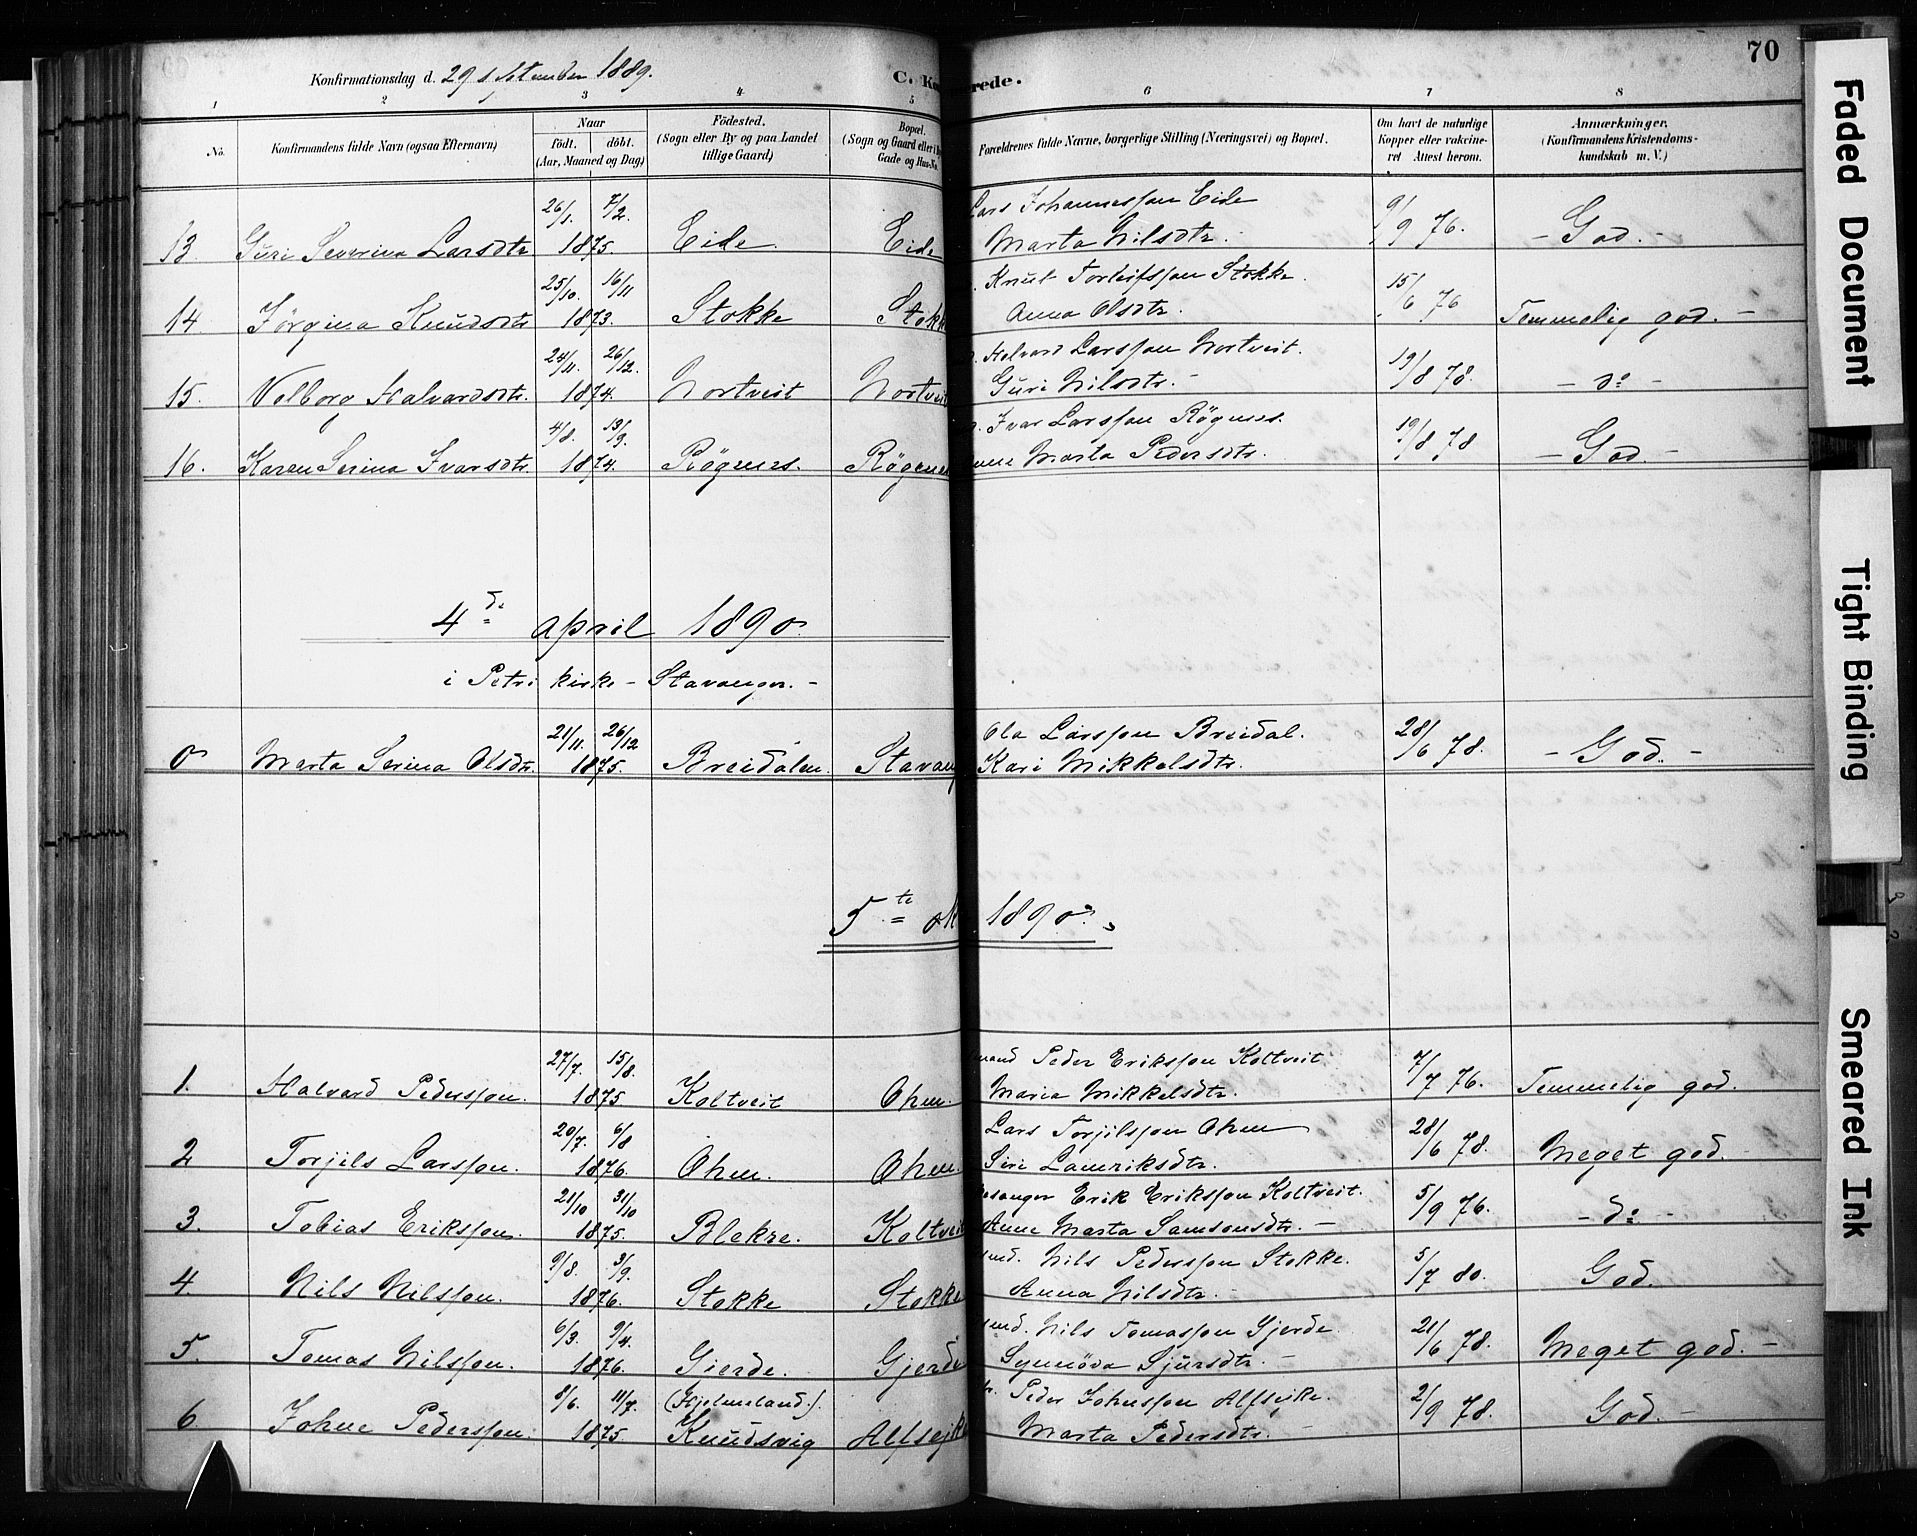 70
Konfirmationsdag d. 29 September 1889.
C. Ko rede.
1 2 3 4 5 6 7 8
No. Konfirmandens fulde Navn (ogsaa Efternavn) Naar født. døbt. (Aar, Maaned og Dag) Fødested. (Sogn eller By og paa Landet tillige Gaard) Bopæl. (Sogn og Gaard eller Gade og Hus-No. Forældrenes fulde Navne, borgerlige Stilling (Næringsvei) og Bopæl. Om havt de naturlige Kopper eller vakcineret Attest herom. Anmærkninger. (Konfirmandens Kristendomskundskab m. V.)
26/1. 7/2. Lars Johannessøn Eide 9/9 76.
13. Guri Severina Larsdtr 1875. Eide. Eide Marta Nilsdtr. - God. -
25/10. 16/11 Knut Torleifssøn Stokke. 15/6 76
14 Jørgina Knudsdtr 1873. Stokke Stokk Anna Olsdtr. Temmelig god. -
24/11. 26/12. Halvard Larssøn Nortveit. 19/8 78.
15. Velborg Halvardsdtr. 1874. Nortveit Nortveit Guri Nilsdtr. - - do -
4/8. 13/9. Ivar Larssøn Røgenes. 19/8 78
16. Karen Serina Ivarsdtr. 1874. Røgenes. Røgenes Marta Pedersdtr. - God. -
4de april 1890
i Petri kirke - Stavanger. -
21/11. 26/12 Ola Larssøn Breidal. 28/6 78.
0 Marta Serina Olsdtr. 1875. Breidalen. Stavang Kari Mikkelsdtr. - God. -
5te ok 1890.
27/7. 15/8. mand Peder Erikssøn Koltveit 7/7 76.
1. Halvard Pederssøn. 1875. Koltveit Ohm. Maria Mikkelsdtr. Temmelig god.
20/7. 6/8 Lars Torjilssøn Ohm 28/6 78.
2 Torjils Larssøn. 1876. Ohm. Ohm. Siri Lauriksdtr. Meget god.
21/10 31/10 Erik Erikssøn Koltveit. 5/9 76.
3. Tobias Erikssøn. 1875. Blekre. Koltveit Anne Marta Samsonsdtr. - - do -
9/8. 3/9. Nils Pederssøn Stokke. 5/7 80.
4. Nils Nilssøn. 1876. Stokke Stokke Anna Nilsdtr. - God.
6/3. 9/4. Nils Tomassøn Gjerde. 21/6 78.
5. Tomas Nilssøn. 1876. Gierde. Gjerde Synnøva Sjursdtr. - Meget god. -
9/6. 11/7. (Hjelmeland.) Peder Johnssøn Alfsejke. 2/9 78.
6 Johne Pederssøn. 1875. Knudsvig Alfsejke Marta Pedersdtr. - God. -
Faded Document
Tight Binding
Smeared Ink